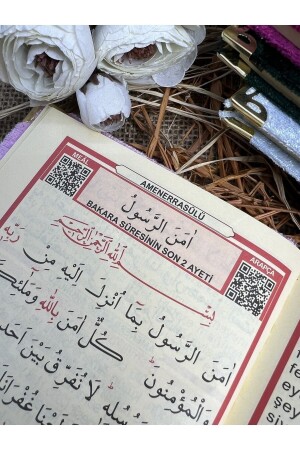 AMENERRASULÜ
MEAL
اٰمَنَ الرَّسُولُ
BAKARA SÛRESİNİN SON 2 AYETİ
ARAPÇA
بِسْمِ اللّٰهِ الرَّحْمٰنِ الرَّحِيمِ
اٰمَنَ الرَّسُولُ بِمَٓا اُنْزِلَ اِلَيْهِ مِنْ رَبِّه۪
وَالْمُؤْمِنُونَ كُلٌّ اٰمَنَ بِاللّٰهِ وَمَلٰٓئِكَ
لَا نُفَرِّقُ بَيْنَ اَحَدٍ
غُفْرَانَكَ